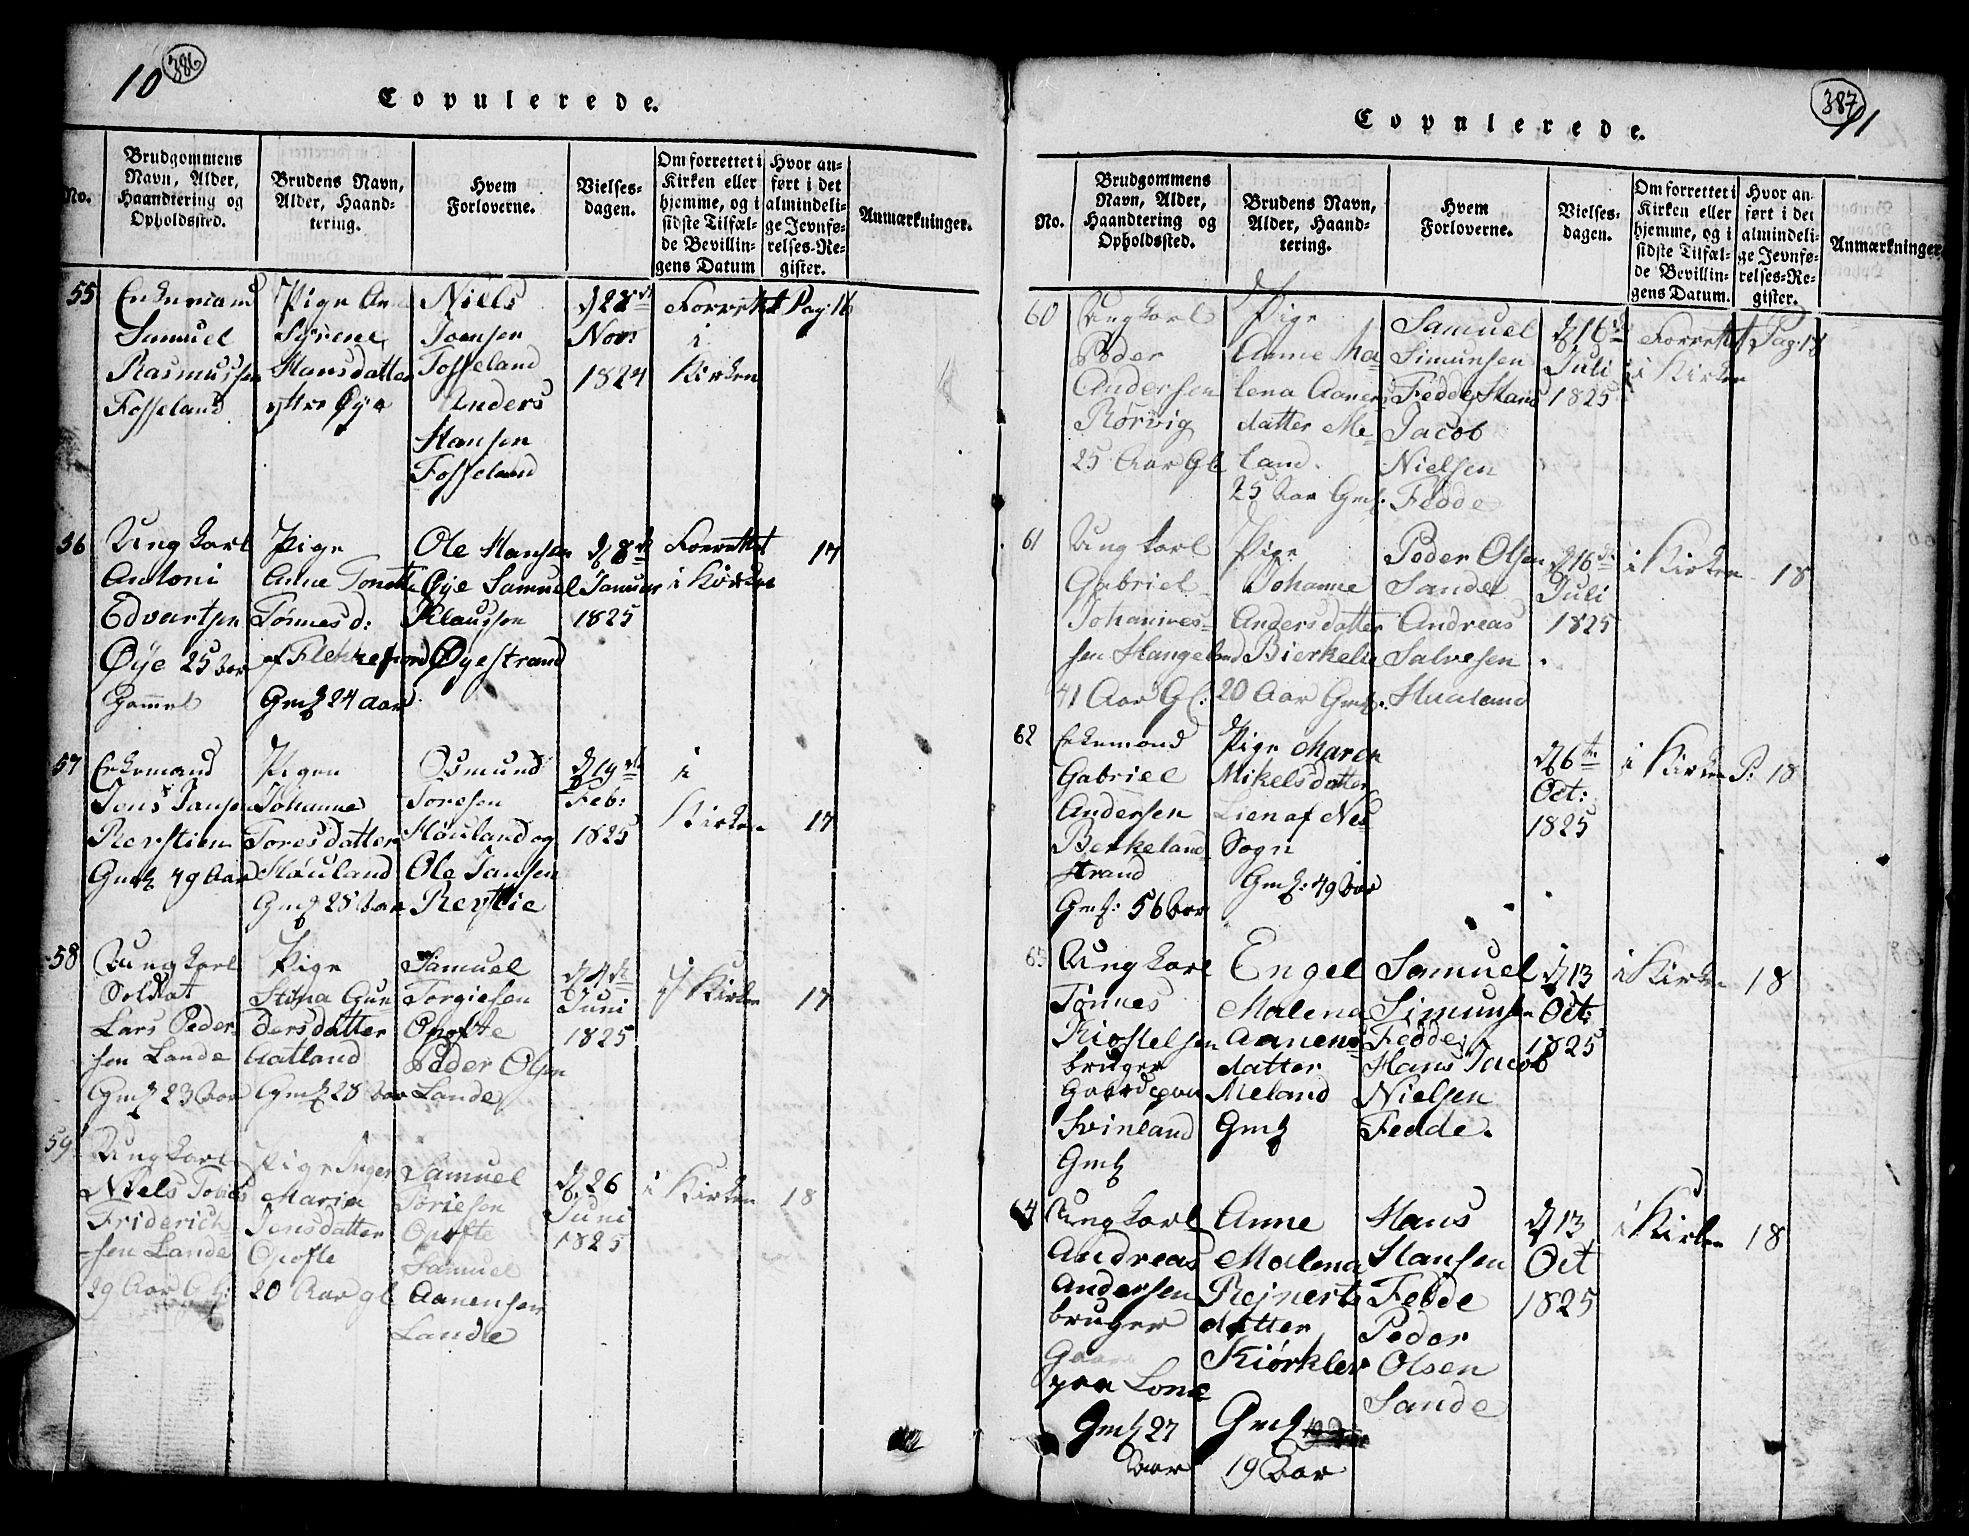 10 386
Copulerede.
No.
Brudgommens
Navn, Alder,
Haandtering og
Opholdssted.
Brudens Navn,
Alder, Haand-
tering.
Hvem
Forloverne.
Vielses-
dagen.
Om forrettet i
Kirken eller
hjemme, og i
sidste Tilfæl-
de Bevillin-
gens Datum
Hvor an-
ført i det
almindeli-
ge Jevnfø-
relses-Re-
gister.
Anmærkninger.
55
Enkemand
Samuel
Rasmussen
Fosseland
Pige
Syrene
Hansdatter
yttre Øye
Niels
Joensen
Fosseland
Anders
Hansen
Fosseland
d 28de
Novr
1824
Forrettet
i
Kirken
Pag: 16
56
Ung karl
Antoni
Edvartsen
Øye 25 Aar
Gammel
Pige
Anne Tonette
Tønnesd:
af Flekkefiord
Gml 24 Aar
Ole Hansen
Øye Samuel
Klaussen
Øyestrand
d 8de
Januar
1825
Forrettet
i Kirken
17
57
Enkemand
Jens Jansen
Rerstien
Gml 49 Aar
Pigen
Johanne
Toresdatter
Høuland
Gml 25 Aar
Osmund
Toresen
Høuland og
Ole Jansen
d 19de
Feb:
1825
i
Kirken
17
58
Ung karl
Soldat
Lars Peder
sen Lande
Gml 23 Aar
Pige
Stina Gun
dersdatter
Aatland
Gml 28 Aar
Samuel
Torgiesen
Opofte
Peder Olsen
Lande
d 4de
Juni
1825
i Kirken
17
59
Ung karl
Niels Tobias
Friderich
sen Lande
29 Aar Gl:
Pige Inger
Maria
Jensdatter
Opofte
20 Aar gl
Samuel
Toriesen
Opofte
Samuel
Aanensen
Lande
d 26
Juni
1825
i Kirken
18
387 11
Copulerede.
No.
Brudgommens
Navn, Alder,
Haandtering og
Opholdssted.
Brudens Navn,
Alder, Haand-
tering.
Hvem
Forloverne.
Vielses-
dagen.
Om forrettet i
Kirken eller
hjemme, og i
sidste Tilfæl-
de Bevillin-
gens Datum.
Hvor an-
ført i det
almindeli-
ge Jevnfø-
relses-Re-
gister.
Anmærkninger
60
Ung karl
Peder
Andersen
Rørvig
25 Aar Gl
Pige
Anne Ma
lena Aanens
datter Me-
land.
25 Aar Gml.
Samuel
Simunsen
Fedde Hans
Jacob
Nielsen
Fedde
d 16de
Juli
1825
Forrettet
i Kirken
Pag: 18
61
Ung karl
Gabriel
Johannes-
sen Hangeland
41 Aar Gl:
Pige
Johanne
Andersdatter
Bierkeli
20 Aar Gml.
Peder Olsen
Sande
Andreas
Salvesen
Hualand
d 16de
Juli
1825
i Kirken
18
62
Enkemand
Gabriel
Andersen
Berkeland
strand
Gml: 56 Aar
Pige Maren
Mikelsdatter
Lien af Nes
Sogn
Gml: 49 Aar
d 6te
Oct:
1825
i Kirken
P: 18
63
Ung karl
Tønnes
Kiostelsen
bruger
Gaard paa
Svinland
Gml
Engel
Malena
Aanens
datter
Meland
Gml
Samuel
Simunsen
Fedde
Hans Jacob
Nielsen
Fedde.
d 13
Oct:
1825
i Kirken
18
64
Ung karl
Andreas
Andersen
bruger
Gaar
paa Lone
Gml 27
Aar
Anne
Malena
Rejnerts
datter
Kiørkler
Gml
19 Aar
Hans
Hansen
Fedde
Peder
Olsen
Sande
d 13
Oct
1825
i Kirken
18